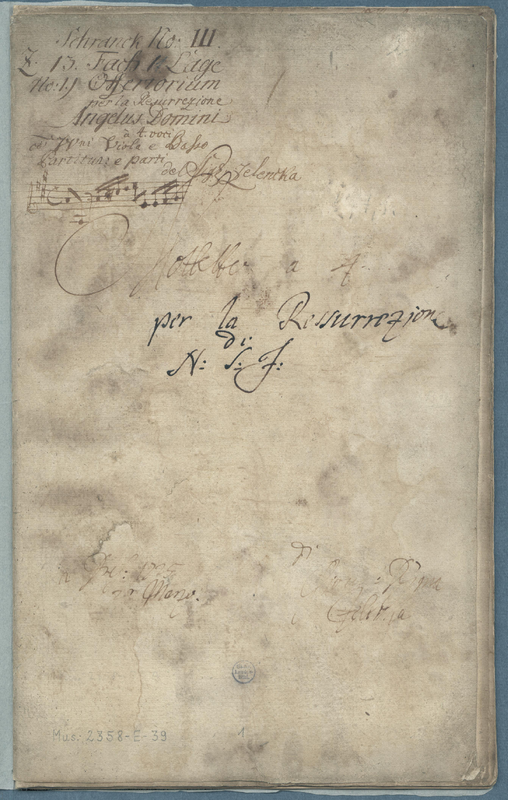 Schranck No: III.
Z. 13. Fach 1. Lage
No: 15 Offertorium
per la Resurrezione
Angelus Domini
à 4. voci
co' VVni Viole e Basso
Partitura e parti
del Sig: Zelenka
a 4
per la Resurrezione
di
N: S: J:
Mus. 2358-E-39
1